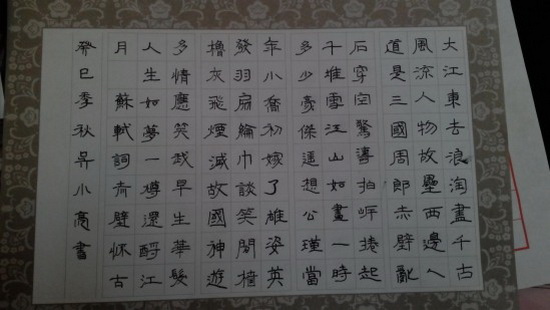 大江東去浪淘盡千古
風流人物故壘西邊人
道是三國周郎赤壁亂
石穿空驚濤拍岸捲起
千堆雪江山如畫一時
多少豪傑遥想公瑾當
年小喬初嫁了雄姿英
發羽扇綸巾談笑間檣
櫓灰飛煙滅故國神遊
多情應笑我早生華髮
人生如夢一樽還酹江
月 蘇軾詞赤壁懷古
癸巳季秋吳小高書